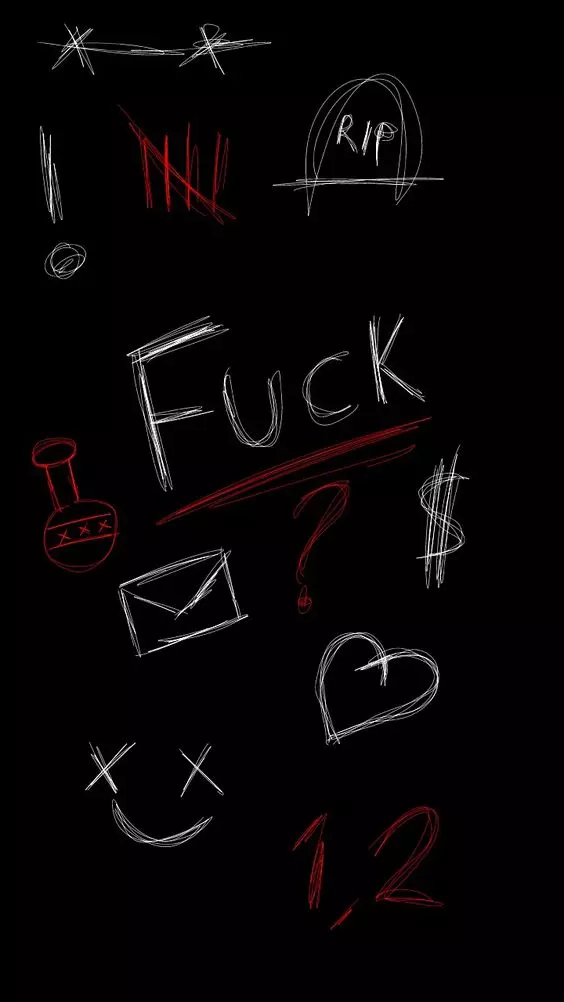 RIP
FUCK
XXX
?
$
1,2